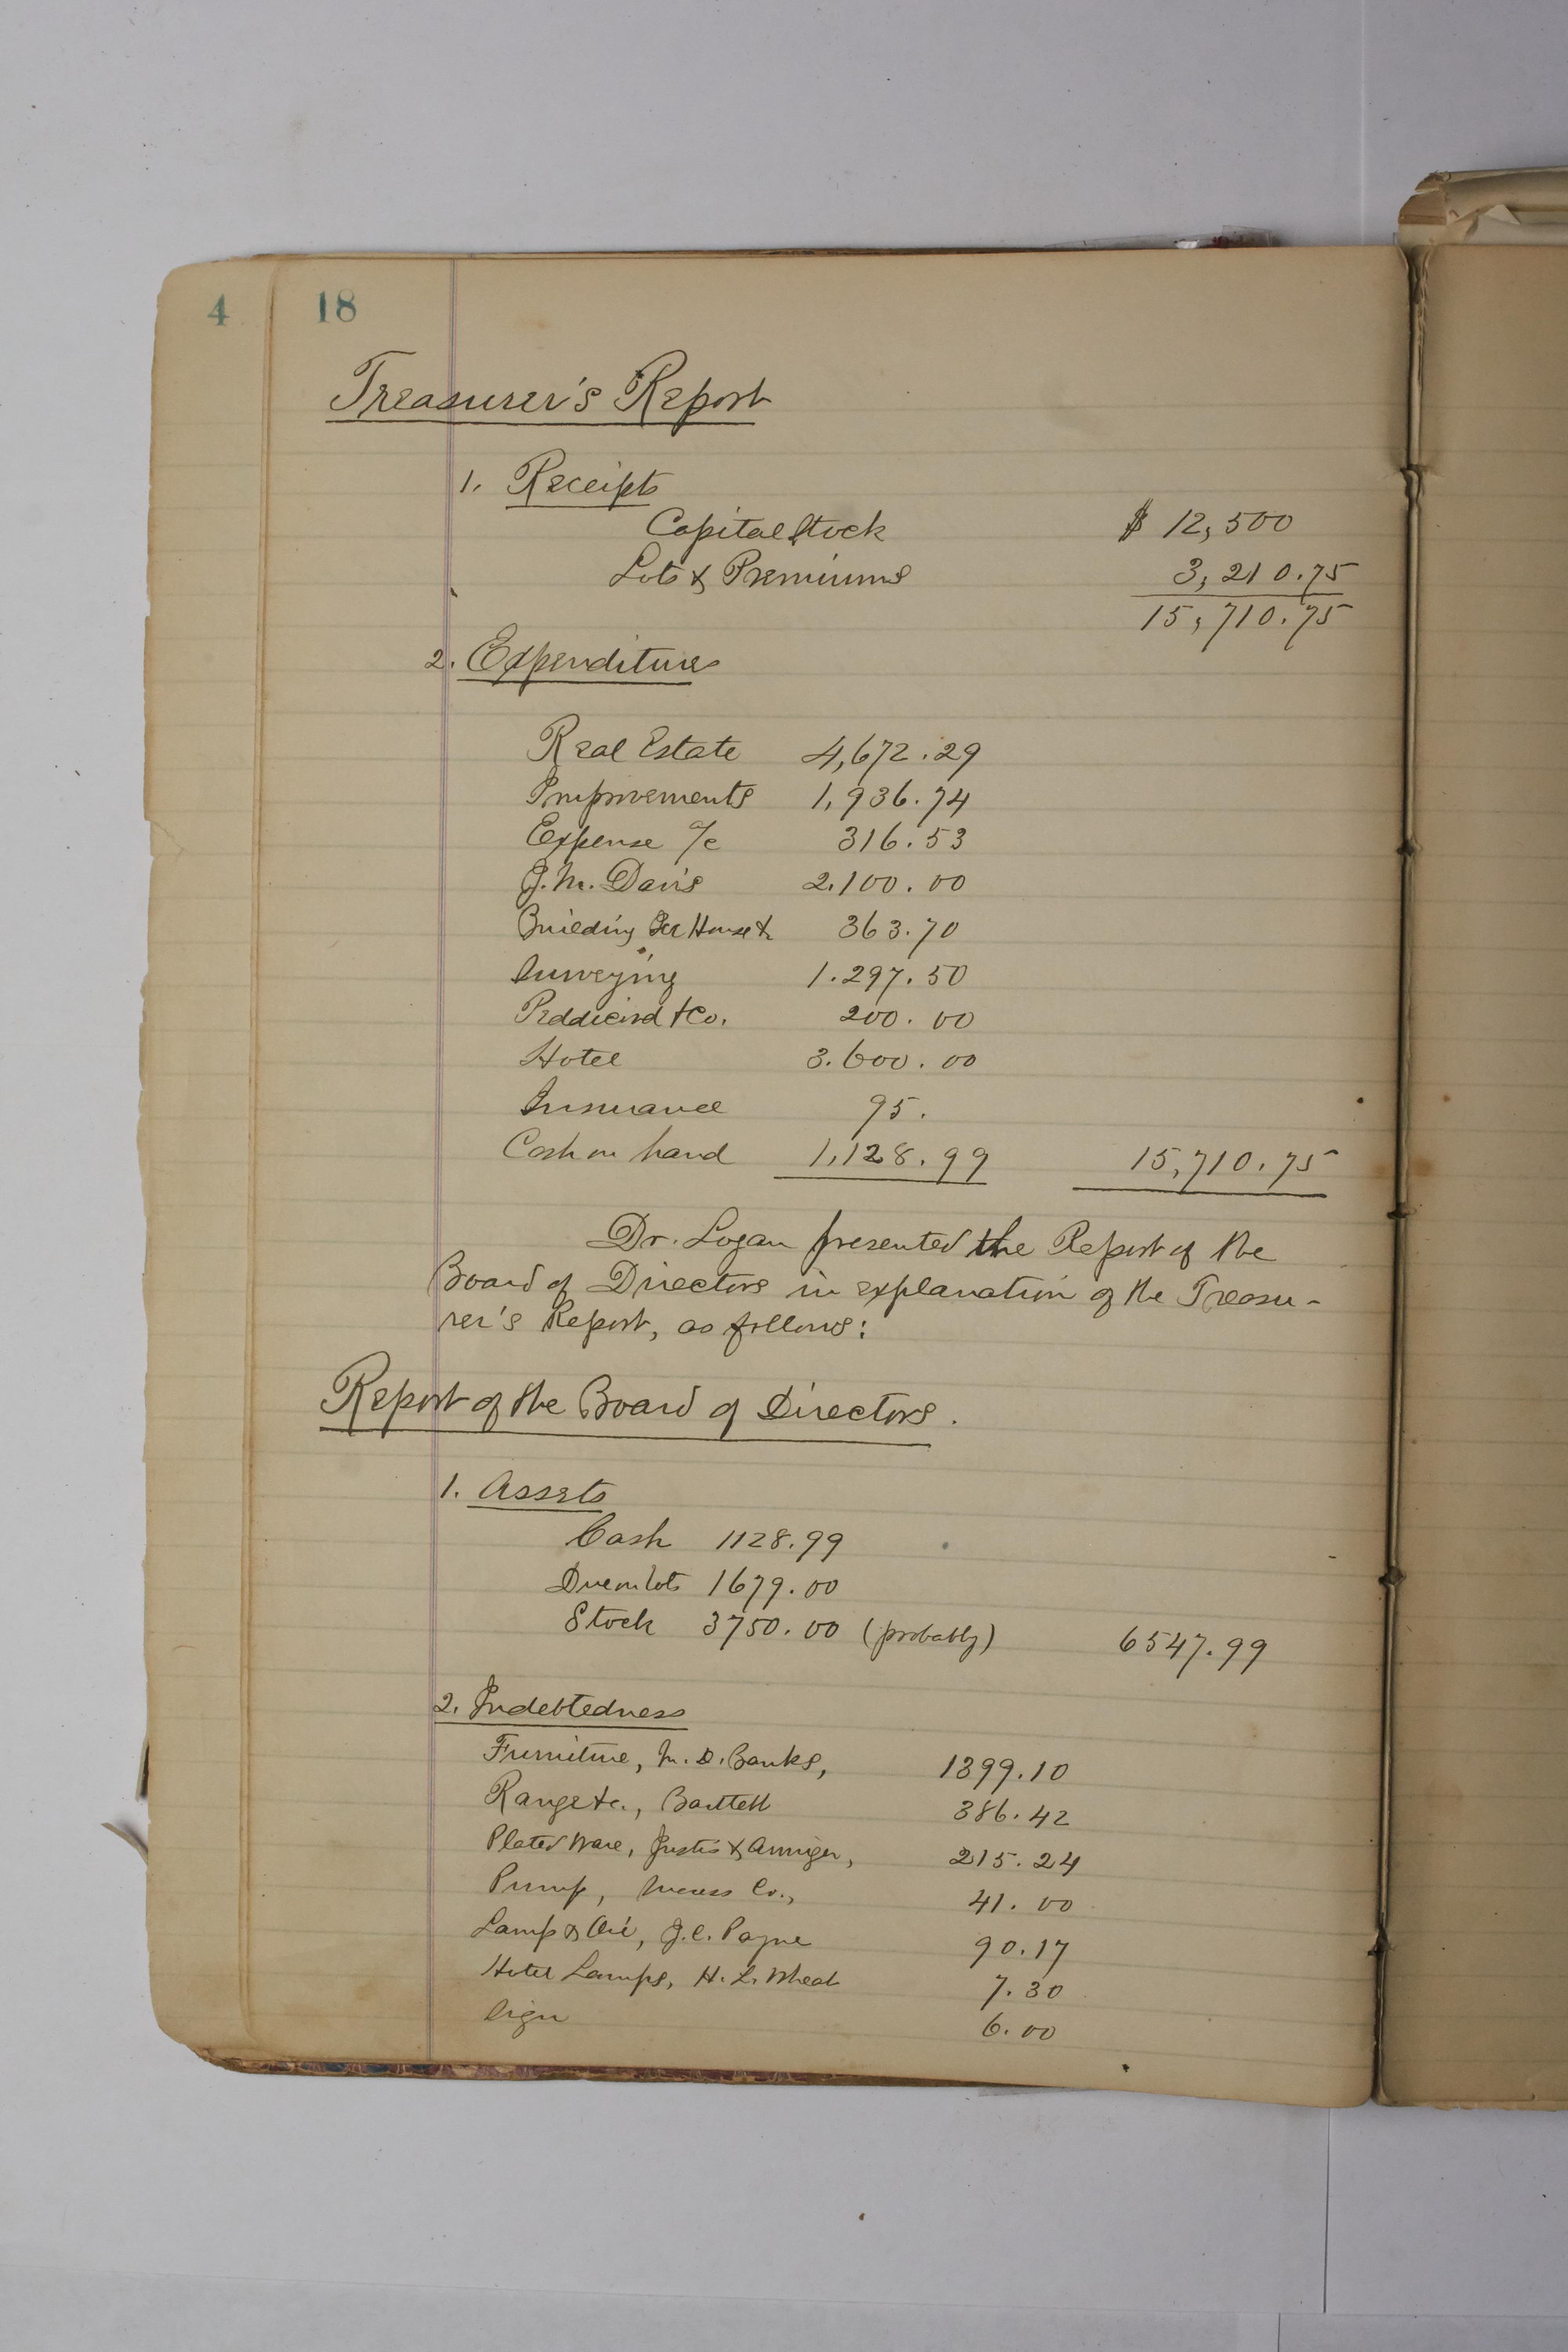 4 18
Treasurer's Report
1. Receipts
Capital Stock $ 12,500
Lots & Premiums 3,210.75
15,710.75
2. Expenditures
Real Estate 4,672.29
Improvements 1,936.74
Expense a/c 316.53
J. M. Davis 2.100.00
Building Ice House &c 363.70
Surveying 1.297.50
Peddicord & Co. 200.00
Hotel 3.600.00
Insurance 95.
Cash on hand 1,128.99 15,710.75
Dr. Logan presented the Report of the
Board of Directors in explanation of the Treasu-
rer's Report, as follows:
Report of the Board of Directors.
1. Assets
Cash 1128.99
Due on lots 1679.00
Stock 3750.00 (probably) 6547.99
2. Indebtedness
Furniture, M. D. Banks, 1399.10
Range &c., Bartlett 386.42
Plated Ware, Justis & Armiger, 215.24
Pump, Co., 41.00
Lamp & Oil, J. C. Payne 90.17
Hotel Lamps, H. L. Wheat 7.30
Sign 6.00